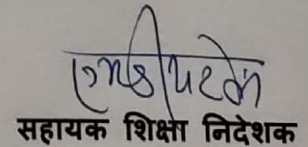 सहायक शिक्षा निदेशक